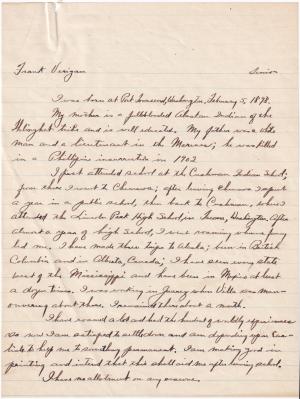 Frank Verigan Senior
I was born at Port Townsend, Washington, February 5, 1898.
My mother is a fullblooded Alaskan Indian of the
Thlinghet tribe and is well educated. My father was a white
man and a lieutenant in the Marines; he was killed
in a Phillipine insurrection in 1902
I first attended school at the Cushman Indian School;
from there I went to Chemawa; after leaving Chemawa I spent
a year in a public school, then back to Cushman, where I
attended the Lincoln Park High School, in Tacoma, Washington. After
almost a year of high school, I went roaming where fancy
led me. I have made three trips to Alaska; been in British
Columbia and in Alberta, Canada; I have seen every state
west of the Mississippi and have been in Mexico at least
a dozen times. I was working in Juarez when Villa was man-
ouvering about there. I remained there about a month.
I have roamed a lot and had hundreds of worldly experiences
so now I am satisfied to settle down and am depending upon Car-
lisle to help me to something permanent. I am making good in
printing and intend that this shall aid me after leaving school.
I have no allotment on any reserve.